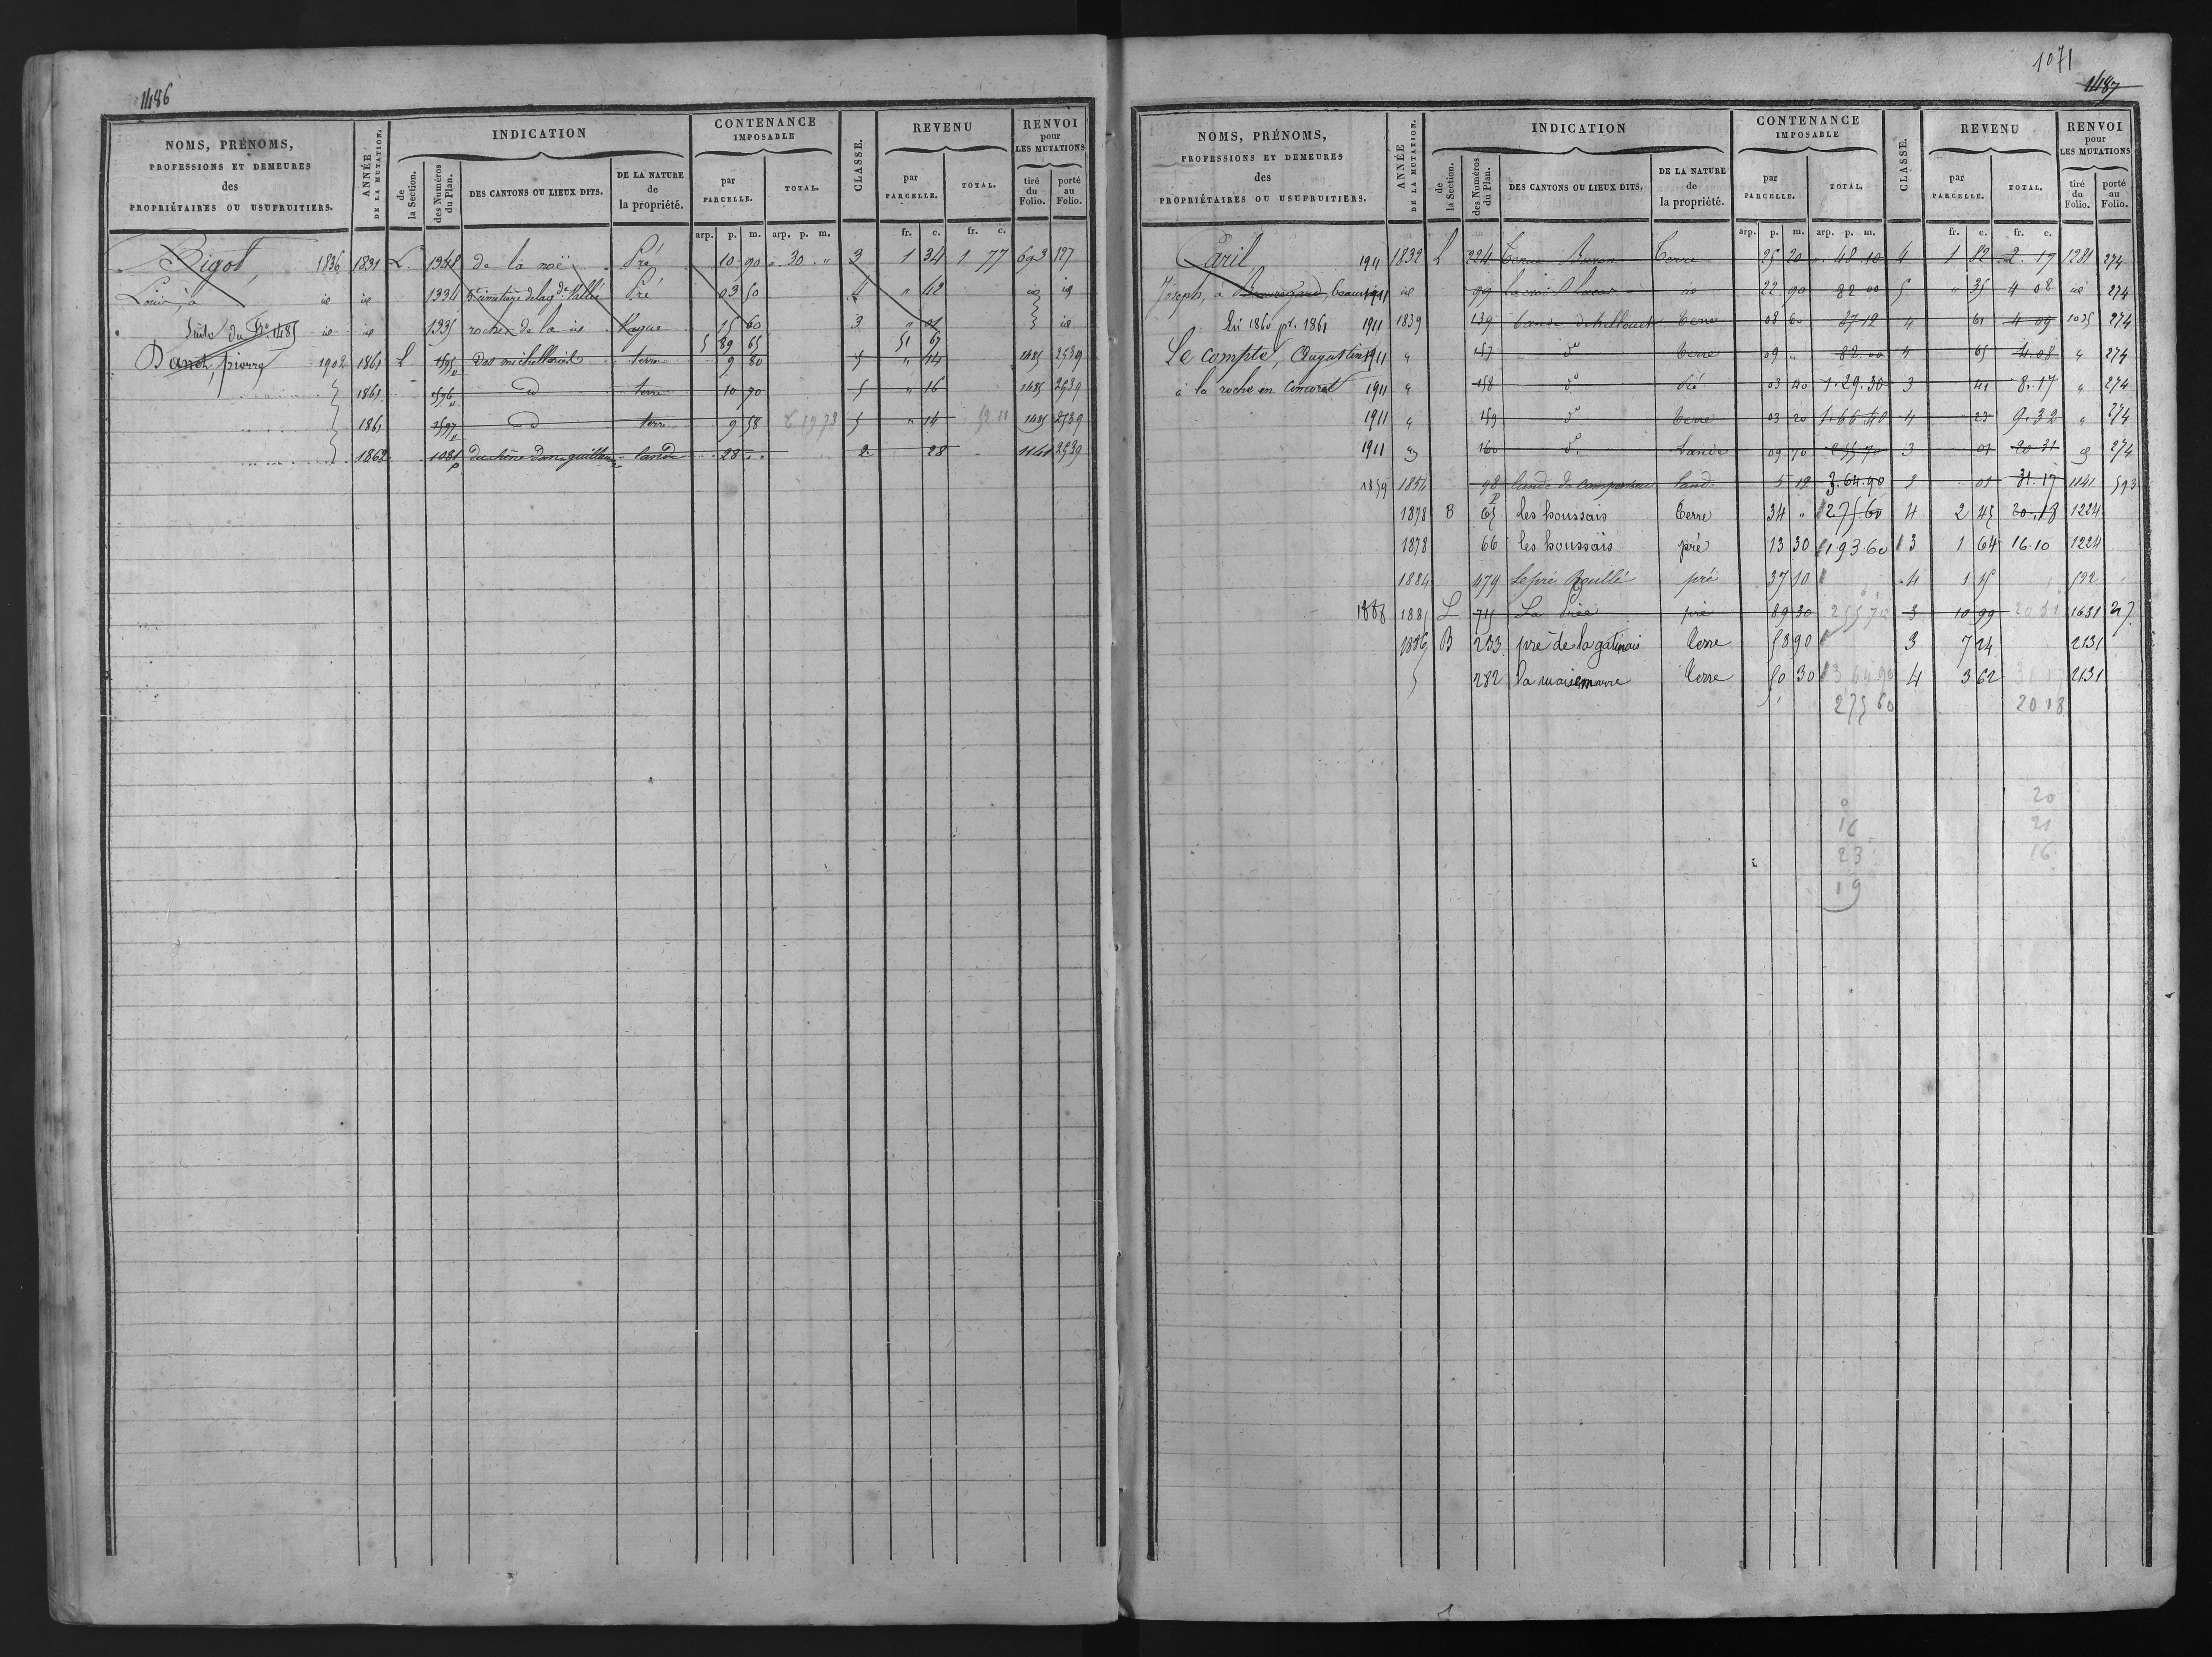 1486
NOMS, PRÉNOMS, PROFESSIONS ET DEMEURES des PROPRIÉTAIRES OU USUFRUITIERS. ANNÉE DE LA MUTATION. INDICATION de la Section. des Numéros du Plan. DES CANTONS OU LIEUX DITS. DE LA NATURE de la propriété. CONTENANCE IMPOSABLE par PARCELLE. TOTAL. CLASSE. REVENU par PARCELLE. TOTAL. RENVOI pour LES MUTATIONS tiré du Folio. porté au Folio.
arp. p. m. arp. p. m. fr. c. fr. c.
Rigot, 1836 1831 L. 1348 de la noë Pré 10 90 30 " 3 1 34 1 77 693 127
Louis, à id id 1334 Vallée Pré 03 50 4 " 42 id id
Suite du fo 1485 id id 1335 rocher de la id Vague 15 60 3 " 01 id
5 89 65 51 67
Danot, pierre 1902 1861 L 1595 terre 9 80 5 " 14 1485 2539
1861 1596 d terre 10 90 5 " 16 1485 2539
1861 1597 d terre 9 58 5 " 14 52 11 1485 2539
1862 1081 p lande 28 " 2 28 1141 2539
1071
1487
NOMS, PRÉNOMS, PROFESSIONS ET DEMEURES des PROPRIÉTAIRES OU USUFRUITIERS. ANNÉE DE LA MUTATION. INDICATION de la Section. des Numéros du Plan. DES CANTONS OU LIEUX DITS. DE LA NATURE de la propriété. CONTENANCE IMPOSABLE par PARCELLE. TOTAL. CLASSE. REVENU par PARCELLE. TOTAL. RENVOI pour LES MUTATIONS tiré du Folio. porté au Folio.
arp. p. m. arp. p. m. fr. c. fr. c.
1911 1832 L 224 Terre 25 20 48 10 4 1 82 2.17 1281 274
Joseph, à Beauregard, 1911 id 99 id 22 90 82 00 5 " 35 4 08 id 274
En 1860 pr. 1861 1911 1839 139 Terre 08 60 87 12 4 61 4 09 1035 274
Le compte, Augustin 1911 " 157 do Terre 09 " 82.00 4 65 4.08 " 274
à la roche en 1911 " 158 do 03 40 1.29.30 3 41 8.17 " 274
1911 " 159 do Terre 03 20 1.66.40 4 23 9.32 " 274
1911 160 do Lande 09 70 2 55 70 3 01 20 31 274
1859 1854 98 p lande de 5 12 3.64.90 2 01 31.17 1141 593
1878 B 65 les houssais Terre 34 " 275.60 4 2 45 20.18 1224
1878 66 les houssais pré 13 30 1.93.60 3 1 64 16.10 1224
1884 479 Le pré Rouillé pré 37 10 4 1 15 592
1888 1885 L 715 La Priée pré 89 30 255 70 3 10 99 20 31 1631 27
1886 B 253 pré de la gatinais terre 58 90 3 7 24 2131
282 la maisemarre terre 50 30 3 64 90 4 3 62 31 17 2131
275 60 20 18
20
16 21
23 16
19